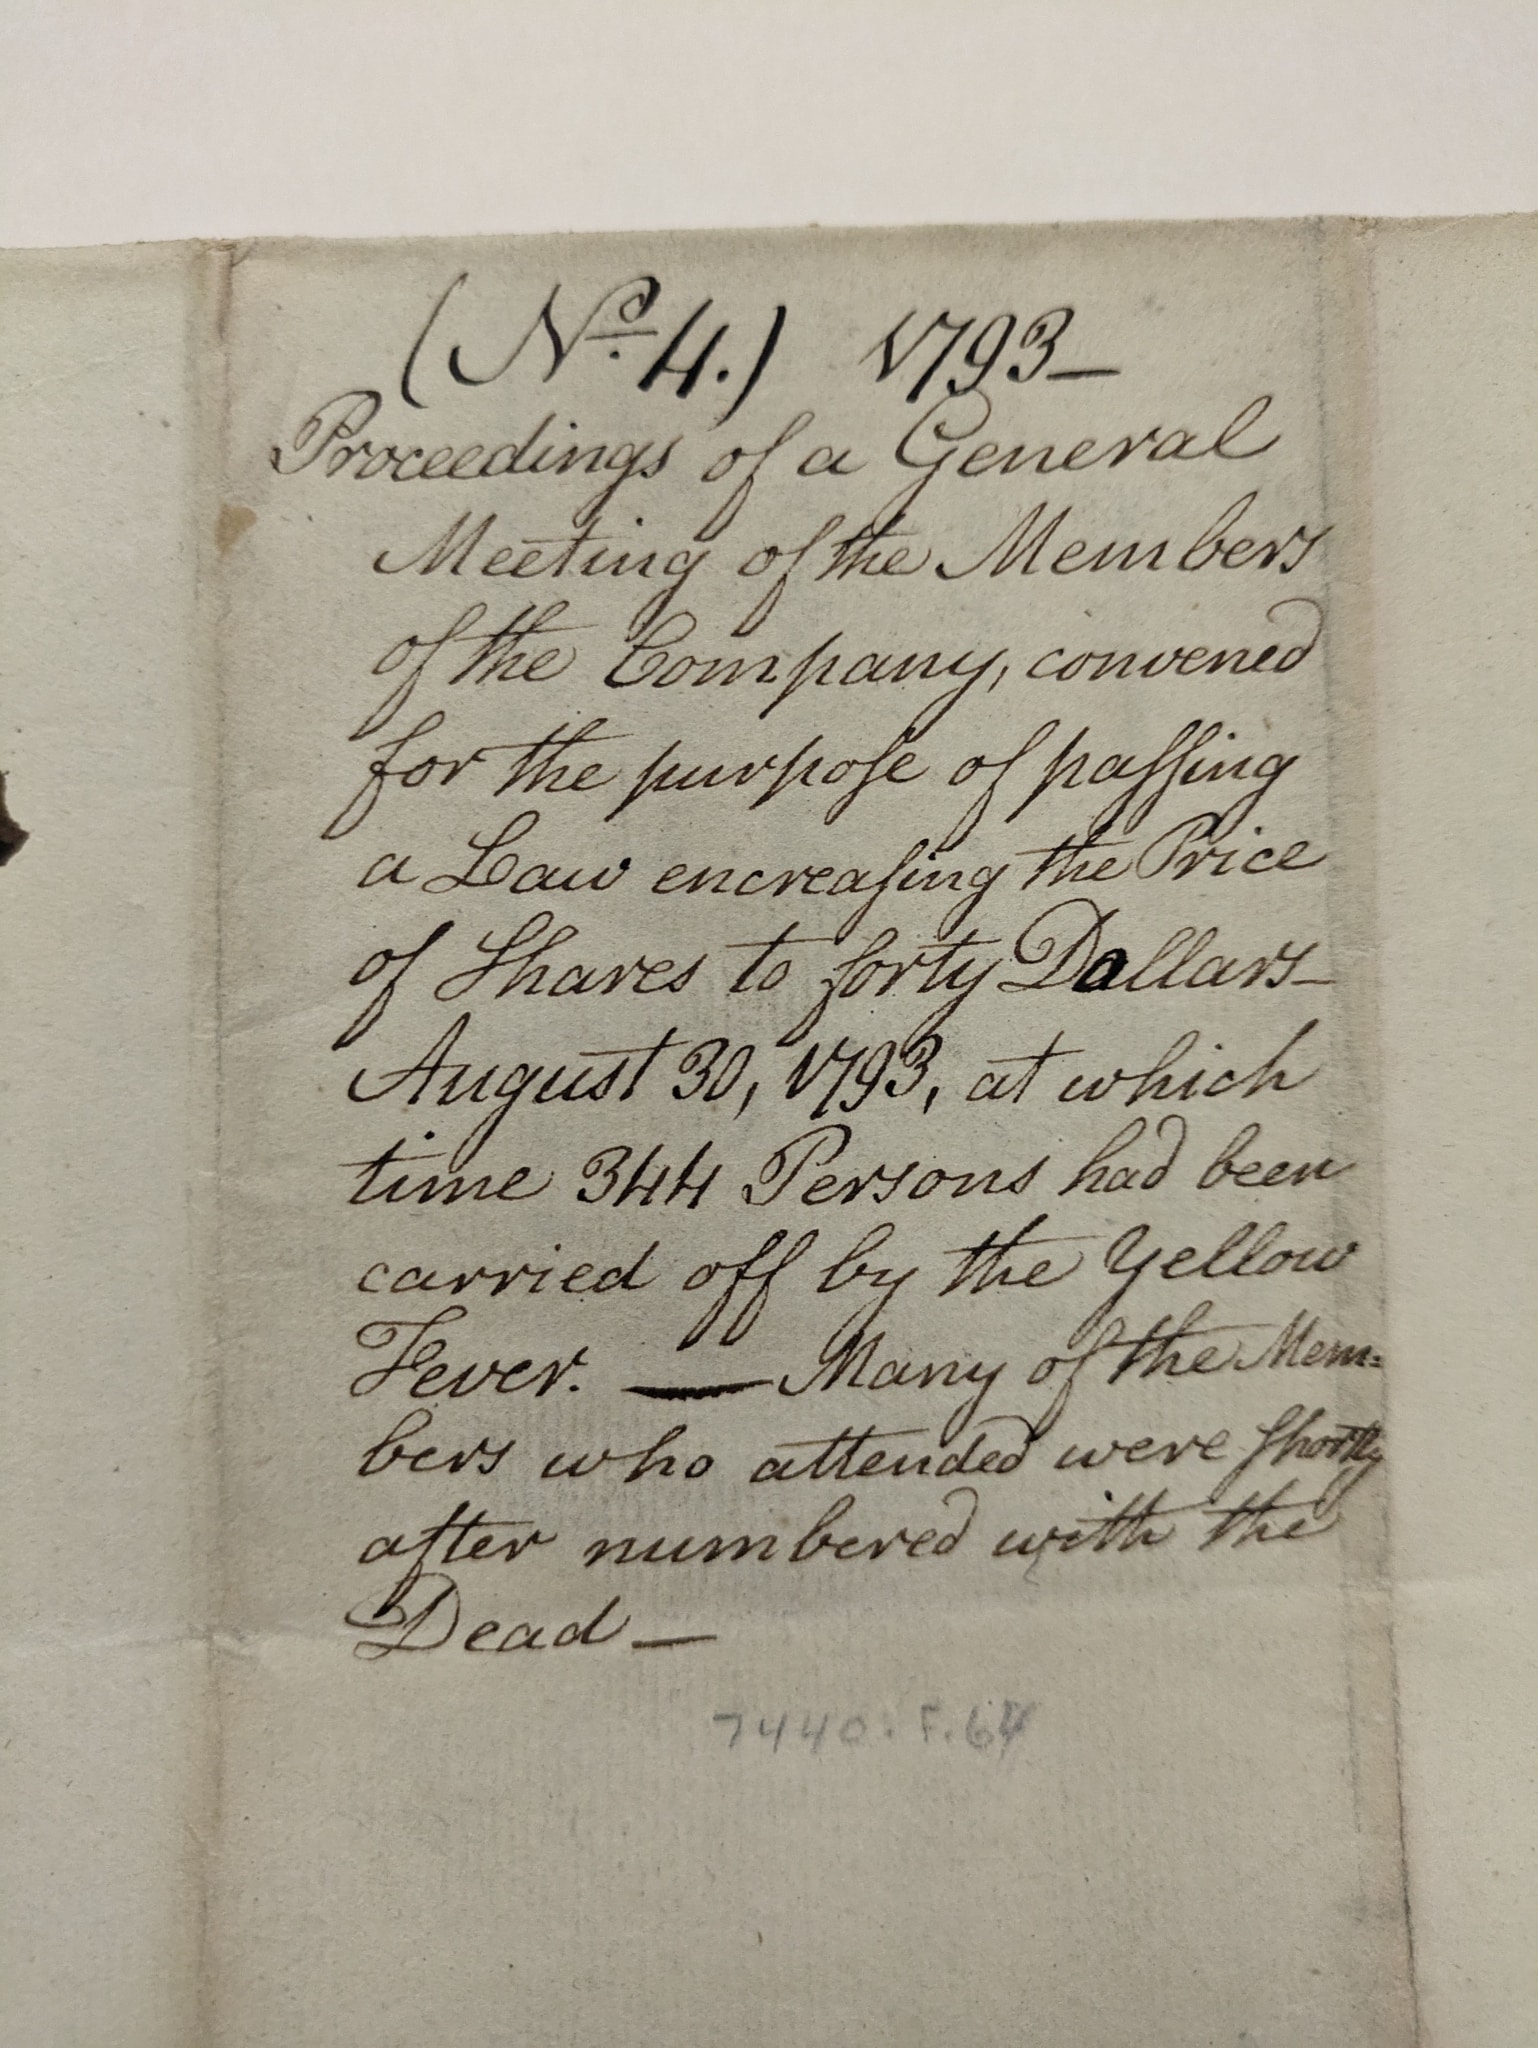 (No. 4.) 1793—
Proceedings of a General
Meeting of the Members
of the Company, convened
for the purpoſe of paſſing
a Law encreaſing the Price
of Shares to forty Dollars—
August 30, 1793, at which
time 344 Persons had been
carried off by the Yellow
Fever. — Many of the Mem=
bers who attended were ſhortly
after numbered with the
Dead —
7440.F.64